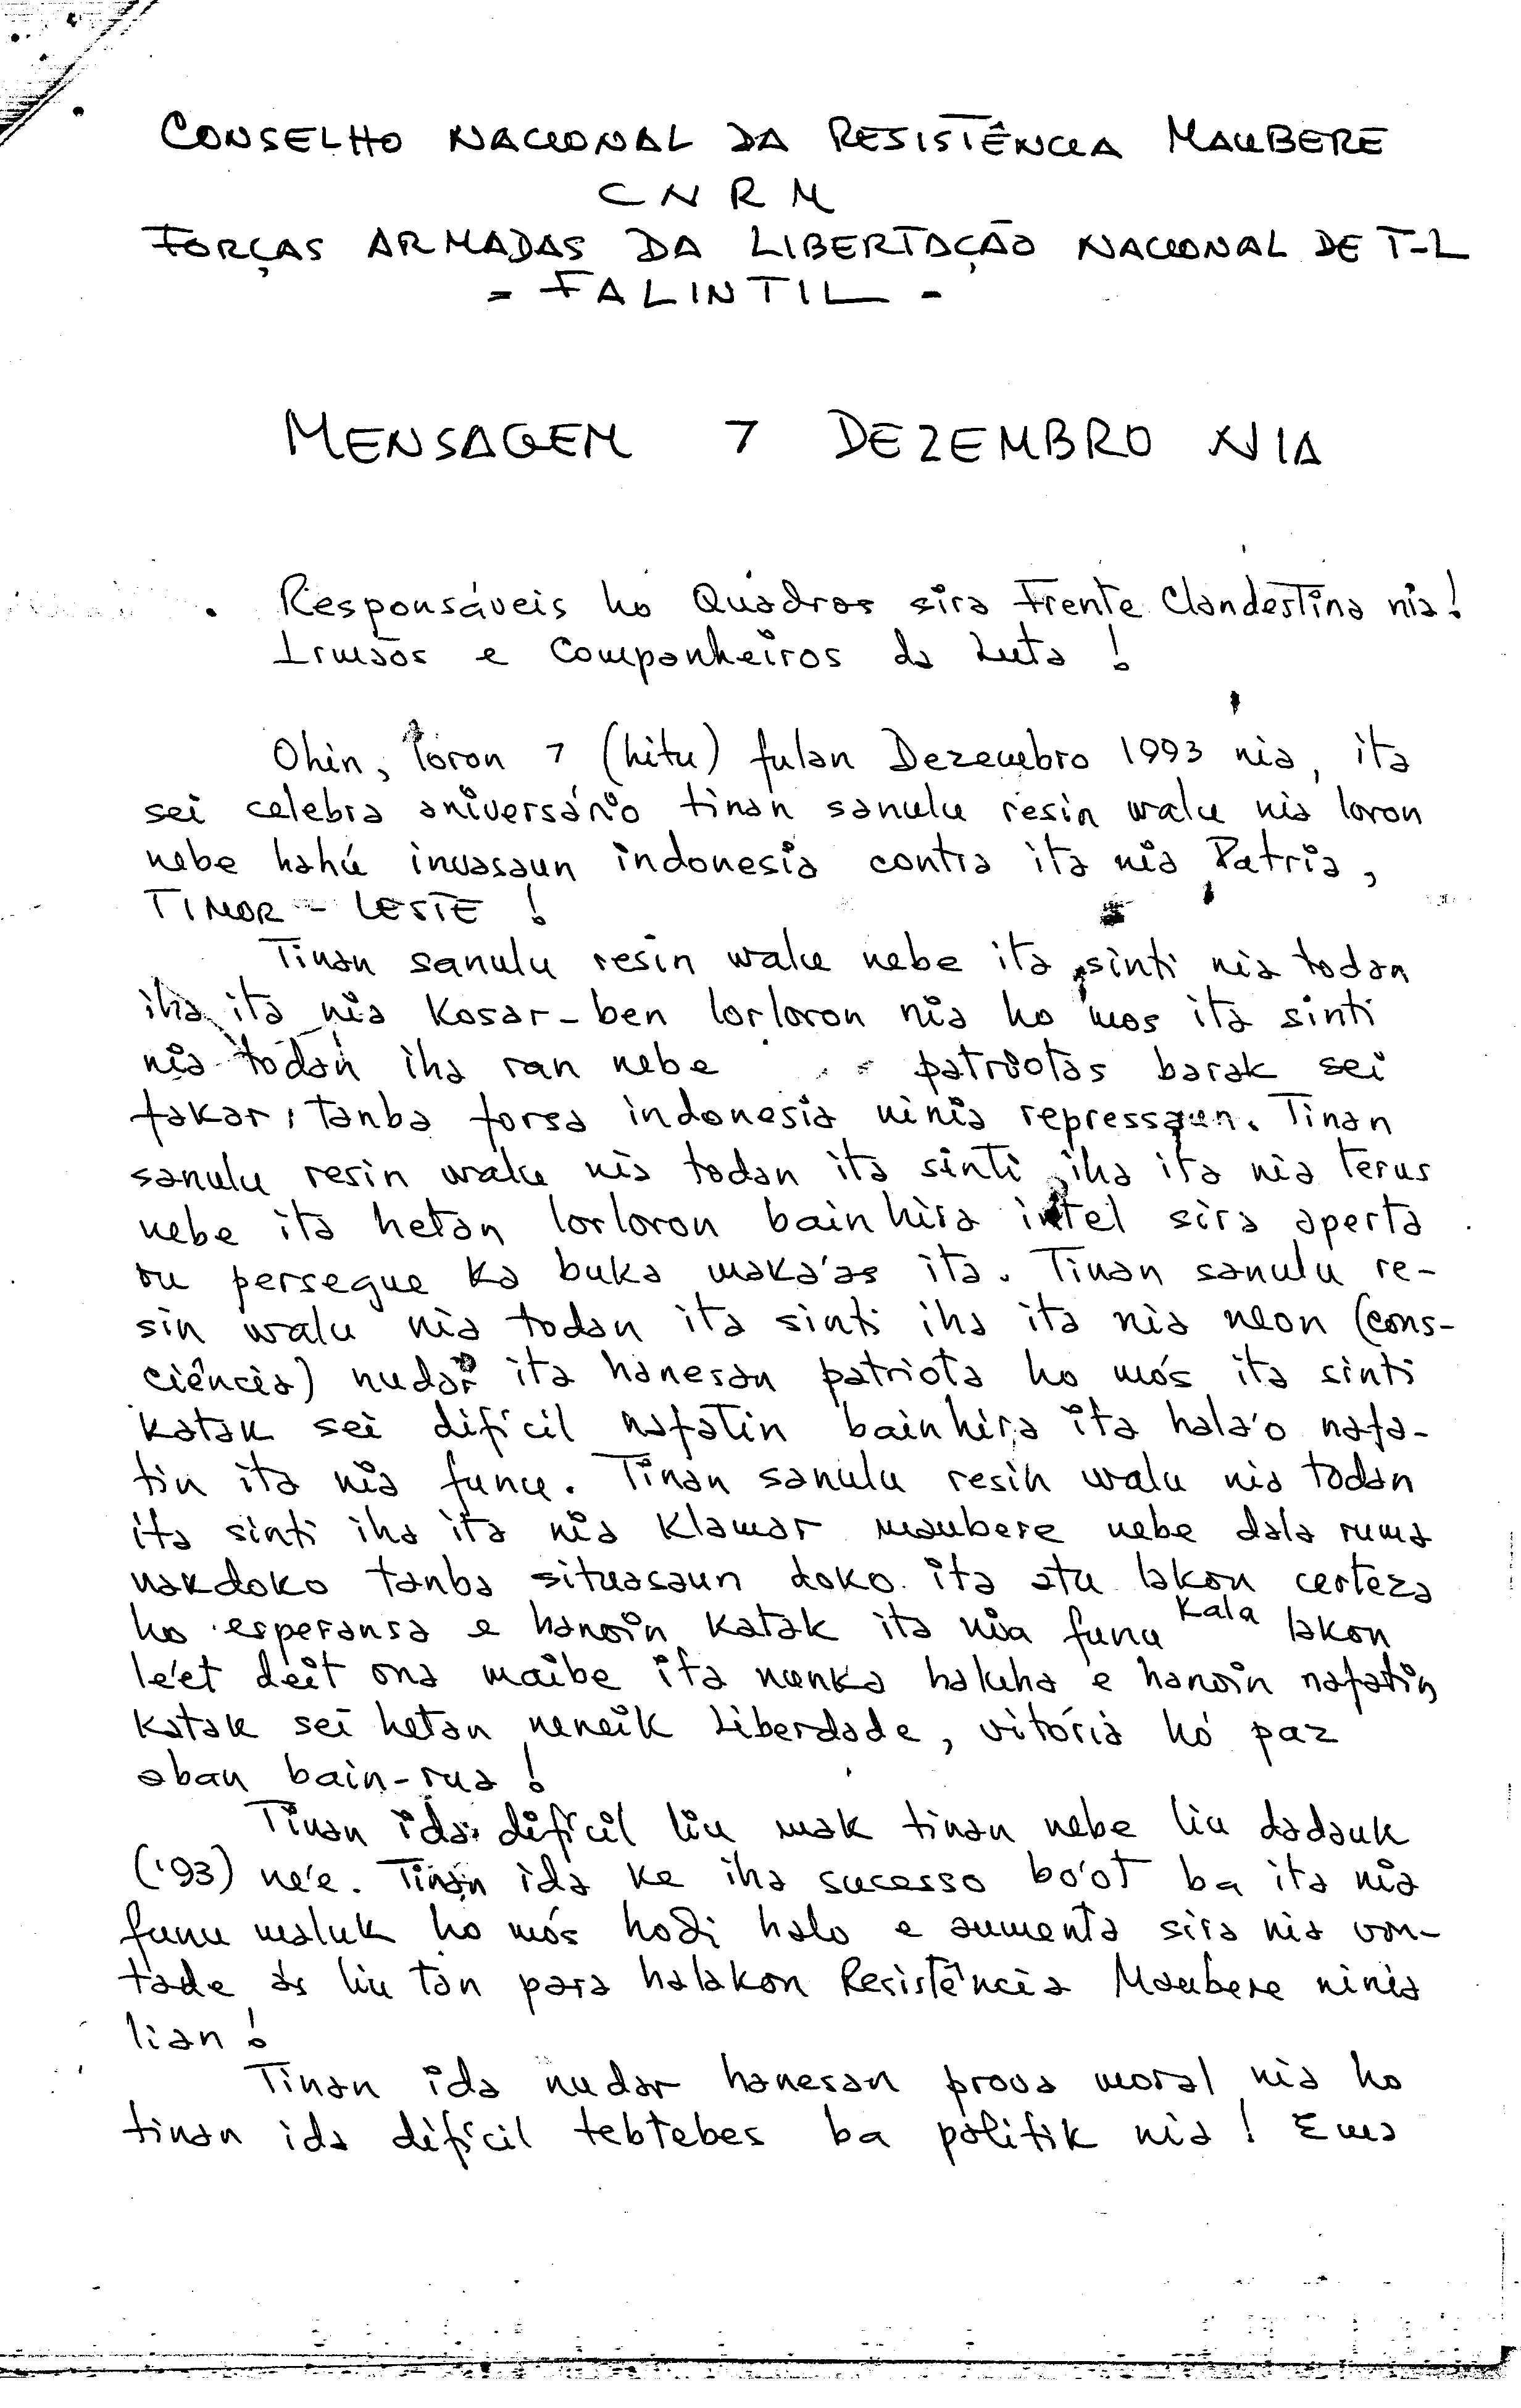 CONSELHO NACIONAL DA RESISTÊNCIA MAUBERE
CNRM
FORÇAS ARMADAS DA LIBERTAÇÃO NACIONAL DE T-L
- FALINTIL -
MENSAGEM 7 DEZEMBRO NIA
Responsáveis ho Quadros sira Frente Clandestina nia!
Irmãos e Companheiros da Luta!
Ohin, loron 7 (hitu) fulan Dezembro 1993 nia, ita
sei celebra aniversário tinan sanulu resin walu nia loron
nebe hahú invasaun indonesia contra ita nia Patria,
TIMOR-LESTE!
Tinan sanulu resin walu nebe ita sinti nia todan
iha ita nia kosar-ben lorloron nia ho mos ita sinti
nia todan iha ran nebe patriotas barak sei
fakar, tanba forsa indonesia ninia repressaun. Tinan
sanulu resin walu nia todan ita sinti iha ita nia terus
nebe ita hetan lorloron bainhira intel sira aperta
ou persegue ka buka maka'as ita. Tinan sanulu re-
sin walu nia todan ita sinti iha ita nia neon (cons-
ciência) nudar ita hanesan patriota ho mós ita sinti
katak sei difícil nafatin bainhira ita hala'o nafa-
tin ita nia funu. Tinan sanulu resin walu nia todan
ita sinti iha ita nia klamar maubere nebe dala ruma
nakdoko tanba situasaun doko ita atu lakon certeza
ho esperansa e hanoin katak ita nia funu kala lakon
le'et deit ona maibe ita nunka haluha e hanoin nafatin
katak sei hetan neneik Liberdade, vitória ho paz
aban bain-rua!
Tinan ida difícil liu mak tinan nebe liu dadauk
('93) ne'e. Tinan ida ke iha sucesso bo'ot ba ita nia
funu maluk ho mós hodi halo e aumenta sira nia von-
tade ás liu tan para halakon Resistência Maubere ninia
lian!
Tinan ida nudar hanesan prova moral nia ho
tinan ida difícil tebtebes ba politik nia! Ema